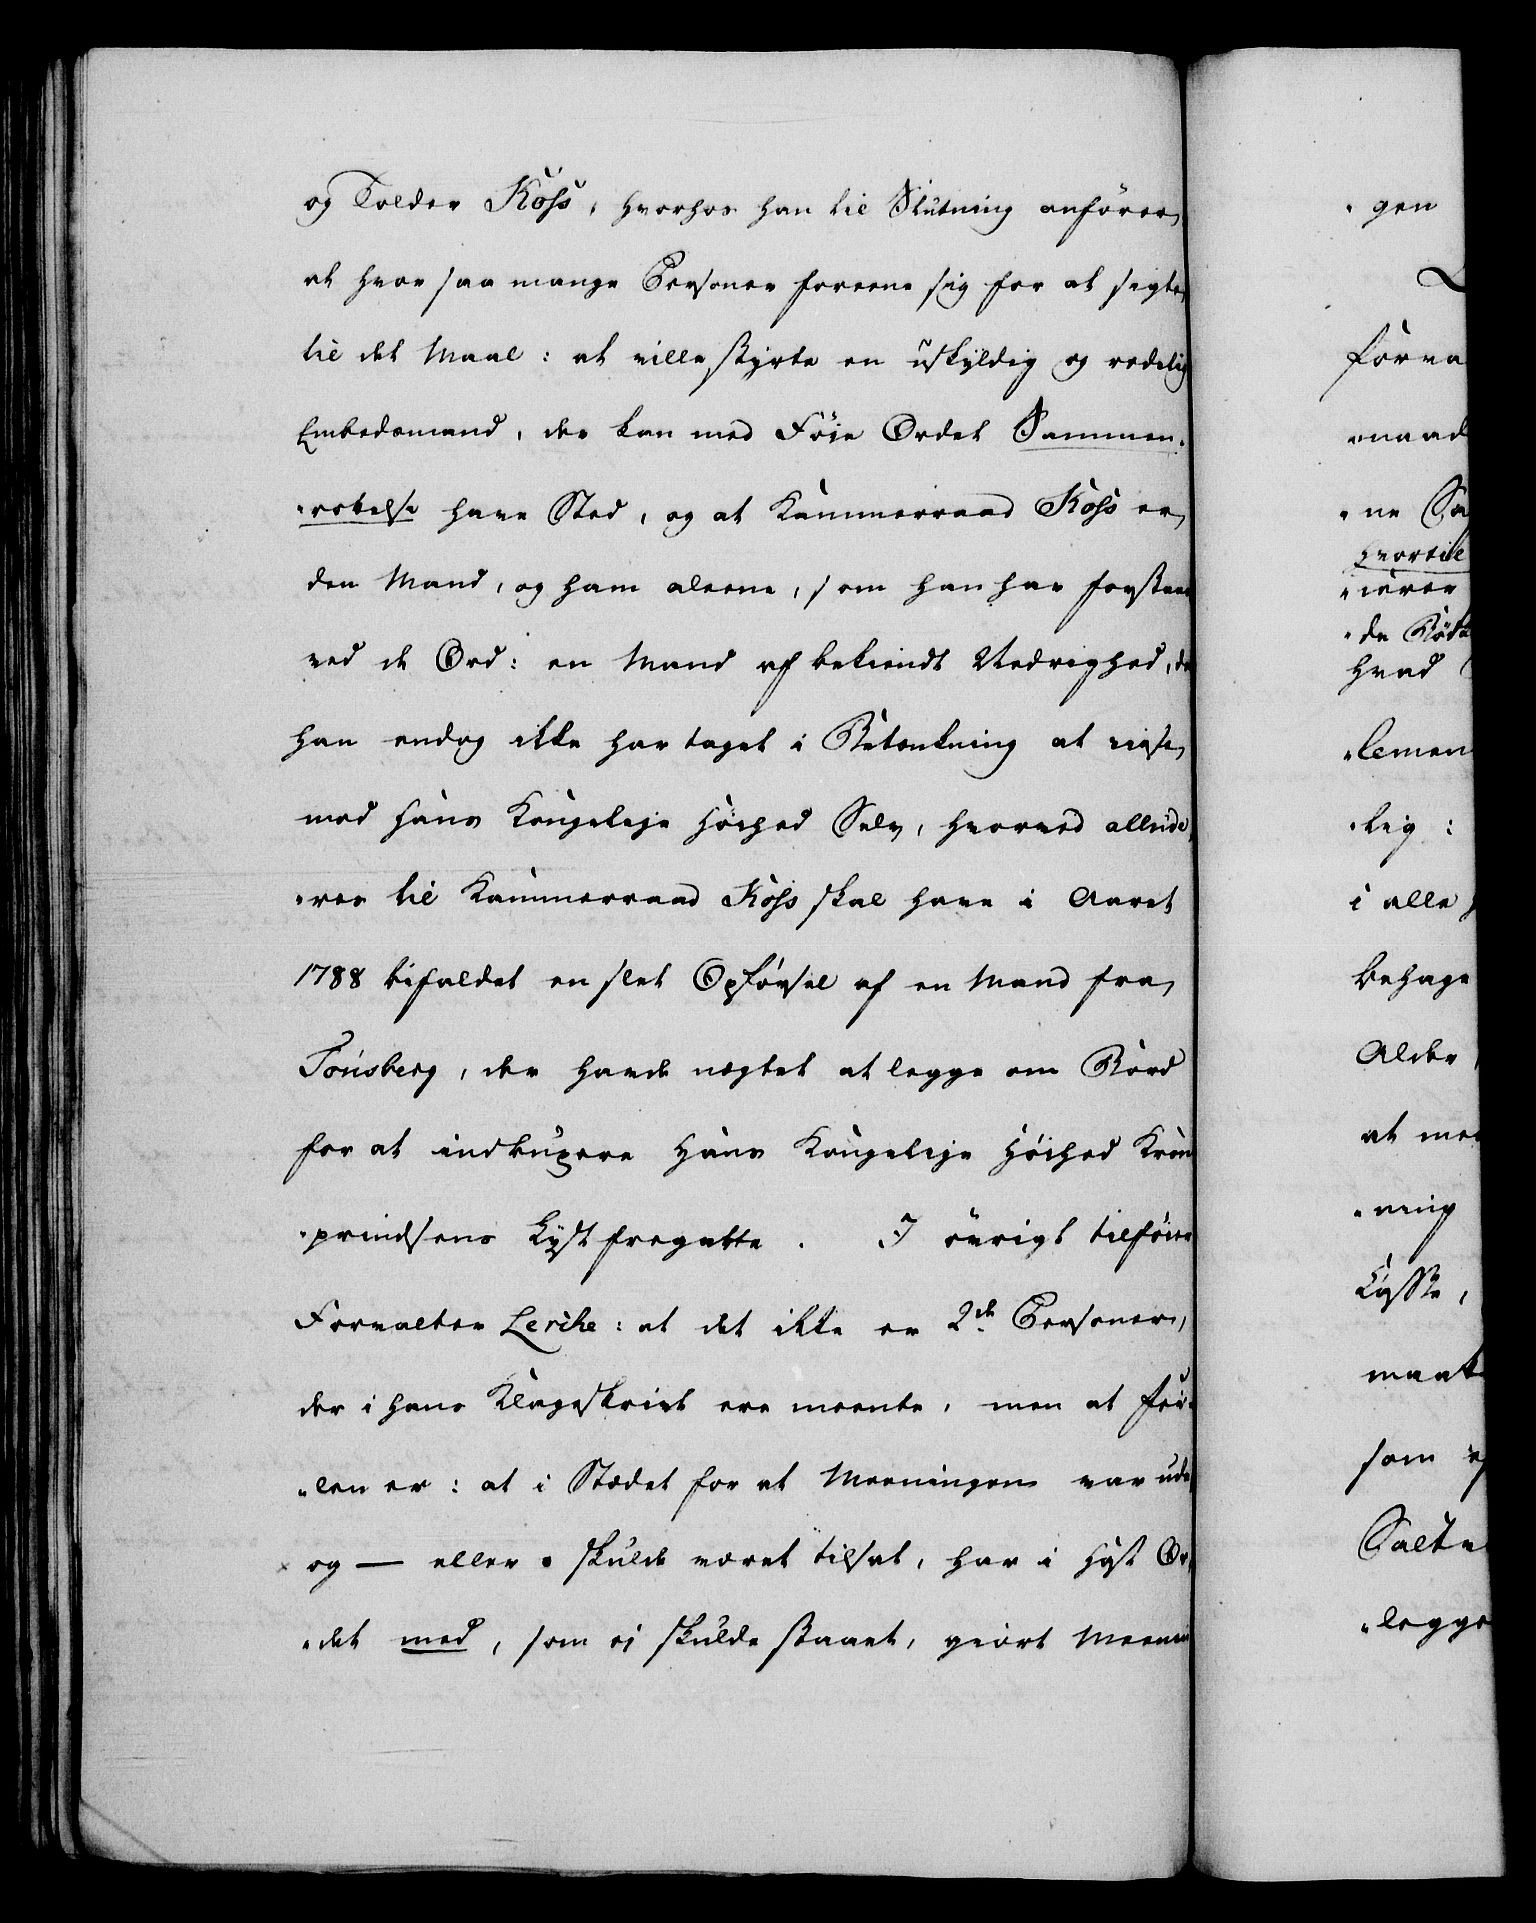 og Tolder Koss, hvorhos han til Slutning anfører
at hvor saa mange Personer foreene sig for at sigte
til det Maal: at ville styrte en uskyldig og redelig
Embedsmand, der kan med Føie Ordet Sammen-
-rottelse have Sted, og at Kammerraad Koss er
den Mand, og ham aleene, som han har forstaaet
ved de Ord: en Mand af bekiendt Nedrighed, da
han endog ikke har taget i Betænkning at viise
mod Hans Kongelige Høihed Selv, hvorved allude-
-res til Kammerraad Koss skal have i Aaret
1788 bifaldet en slet Opførsel af en Mand fra
Tønsberg, der havde nægtet at legge om Bord
for at indbuxere Hans Kongelige Høihed Kron-
-prindsens Lystfregatte. I øvrigt tilføier
Forvalter Lerche: at det ikke er 2de Personer,
der i hans Klageskrivt ere meente, men at Fei-
-len er: at i Stædet for at Meeningen var uden
og — eller skulde været tilsat, har i Hast Or-
-det med, som ei skulde staaet, giort Meenin
- gen
forva
-naad
- ne Sa
hvortil
hvad
-lig:
i alle
behage
Alder
at med
-ning
som
-legge